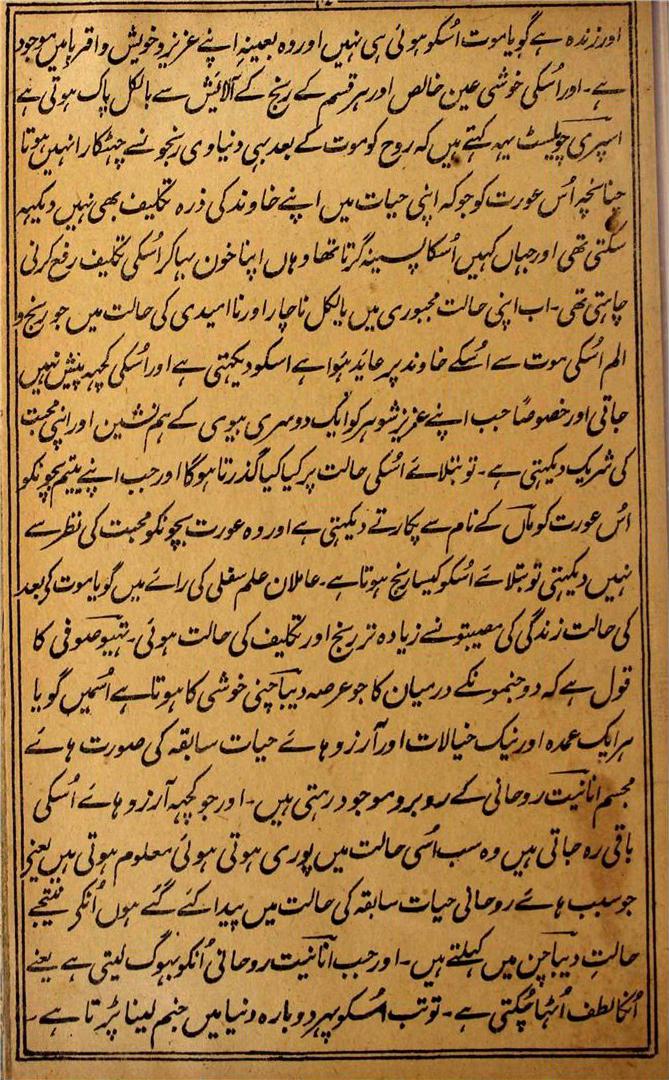 اور زندہ ہے گویا موت اُسکو ہوئی ہی نہیں اور وہ بعینہٖ اپنے عزیز و خویش و اقربا میں موجود
ہے۔ اور اُسکی خوشی عین خالص اور ہر قسم کے رنج کے آلائیش سے بالکل پاک ہوتی ہے
اسپری چویلسٹ یہہ کہتے ہیں کہ روح کو موت کے بعد بہی دنیاوی رنجو نسے چہٹکارا نہیں ہوتا
چنانچہ اُس عورت کو جو کہ اپنی حیات میں اپنے خاوند کی ذرہ تکلیف بھی نہیں دیکہہ
سکتی تھی اور جہاں کہیں اُسکا پسینہ گرتا تھا وہاں اپنا خون بہا کر اُسکی تکلیف رفع کرنی
چاہتی تھی۔ اب اپنی حالت مجبوری میں بالکل ناچار اور نا امیدی کی حالت میں جو رنج و
الم اُسکی موت سے اُسکے خاوند پر عاید ہُوا ہے اسکو دیکہتی ہے اور اُسکی کچہہ پیش نہیں
جاتی اور خصوصاً جب اپنے عزیز شوہر کو ایک دوسری بیوی کے ہم نشین اور اپنی محبت
کی شریک دیکہتی ہے۔ تو بتلائے اُسکی حالت پر کیا کیا گذرتا ہوگا اور جب اپنے یتیم بچونکو
اُس عورت کو ماں کے نام سے پکارتے دیکہتی ہے اور وہ عورت بچونکو محبت کی نظر سے
نہیں دیکہتی تو بتلائے اُسکو کیسا رنج ہوتا ہے۔ عاملان علم سفلی کی رائے میں گویا موت کے بعد
کی حالت زندگی کی مصیبتو نسے زیادہ تر رنج اور تکلیف کی حالت ہوئی۔ تہیوصوفی کا
قول ہے کہ دو جنمونکے درمیان کا جو عرصہ دیباچنی خوشی کا ہوتا ہے اُسمیں گویا
ہر ایک عمدہ اور نیک خیالات اور آرزو ہائے حیات سابقہ کی صورت ہائے
مجسم انانیت روحانی کے روبرو موجود رہتی ہیں۔ اور جو کچہہ آرزو ہائے اُسکی
باقی رہ جاتی ہیں وہ سب اُسی حالت میں پوری ہوتی ہوئی معلوم ہوتی ہیں یعنے
جو سبب ہائے روحانی حیات سابقہ کی حالت میں پیدا کئے گئے ہوں اُنکی نتیجے
حالتِ دیباچن میں کہلتے ہیں۔ اور جب انانیت روحانی اُنکو بہوگ لیتی ہے یعنے
اُنکا لطف اُٹہا چُکتی ہے۔ تو تب اُسکو پہر دوبارہ دنیا میں جنم لینا پڑتا ہے۔